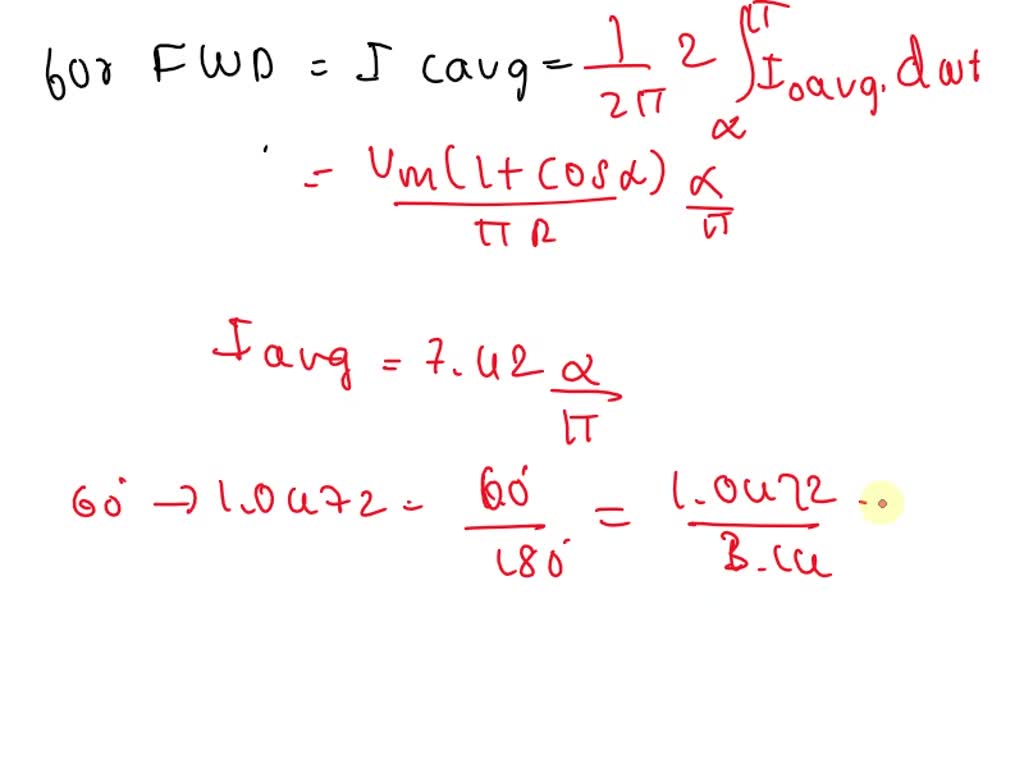 for FWD = I cavg = 1/2π 2 ∫_α^π I₀avg. dωt
= Vm(1+cosα)/πR α/π
I avg = 7.42 α/π
60° → 1.0472 = 60°/180° = 1.0472/3.14 =